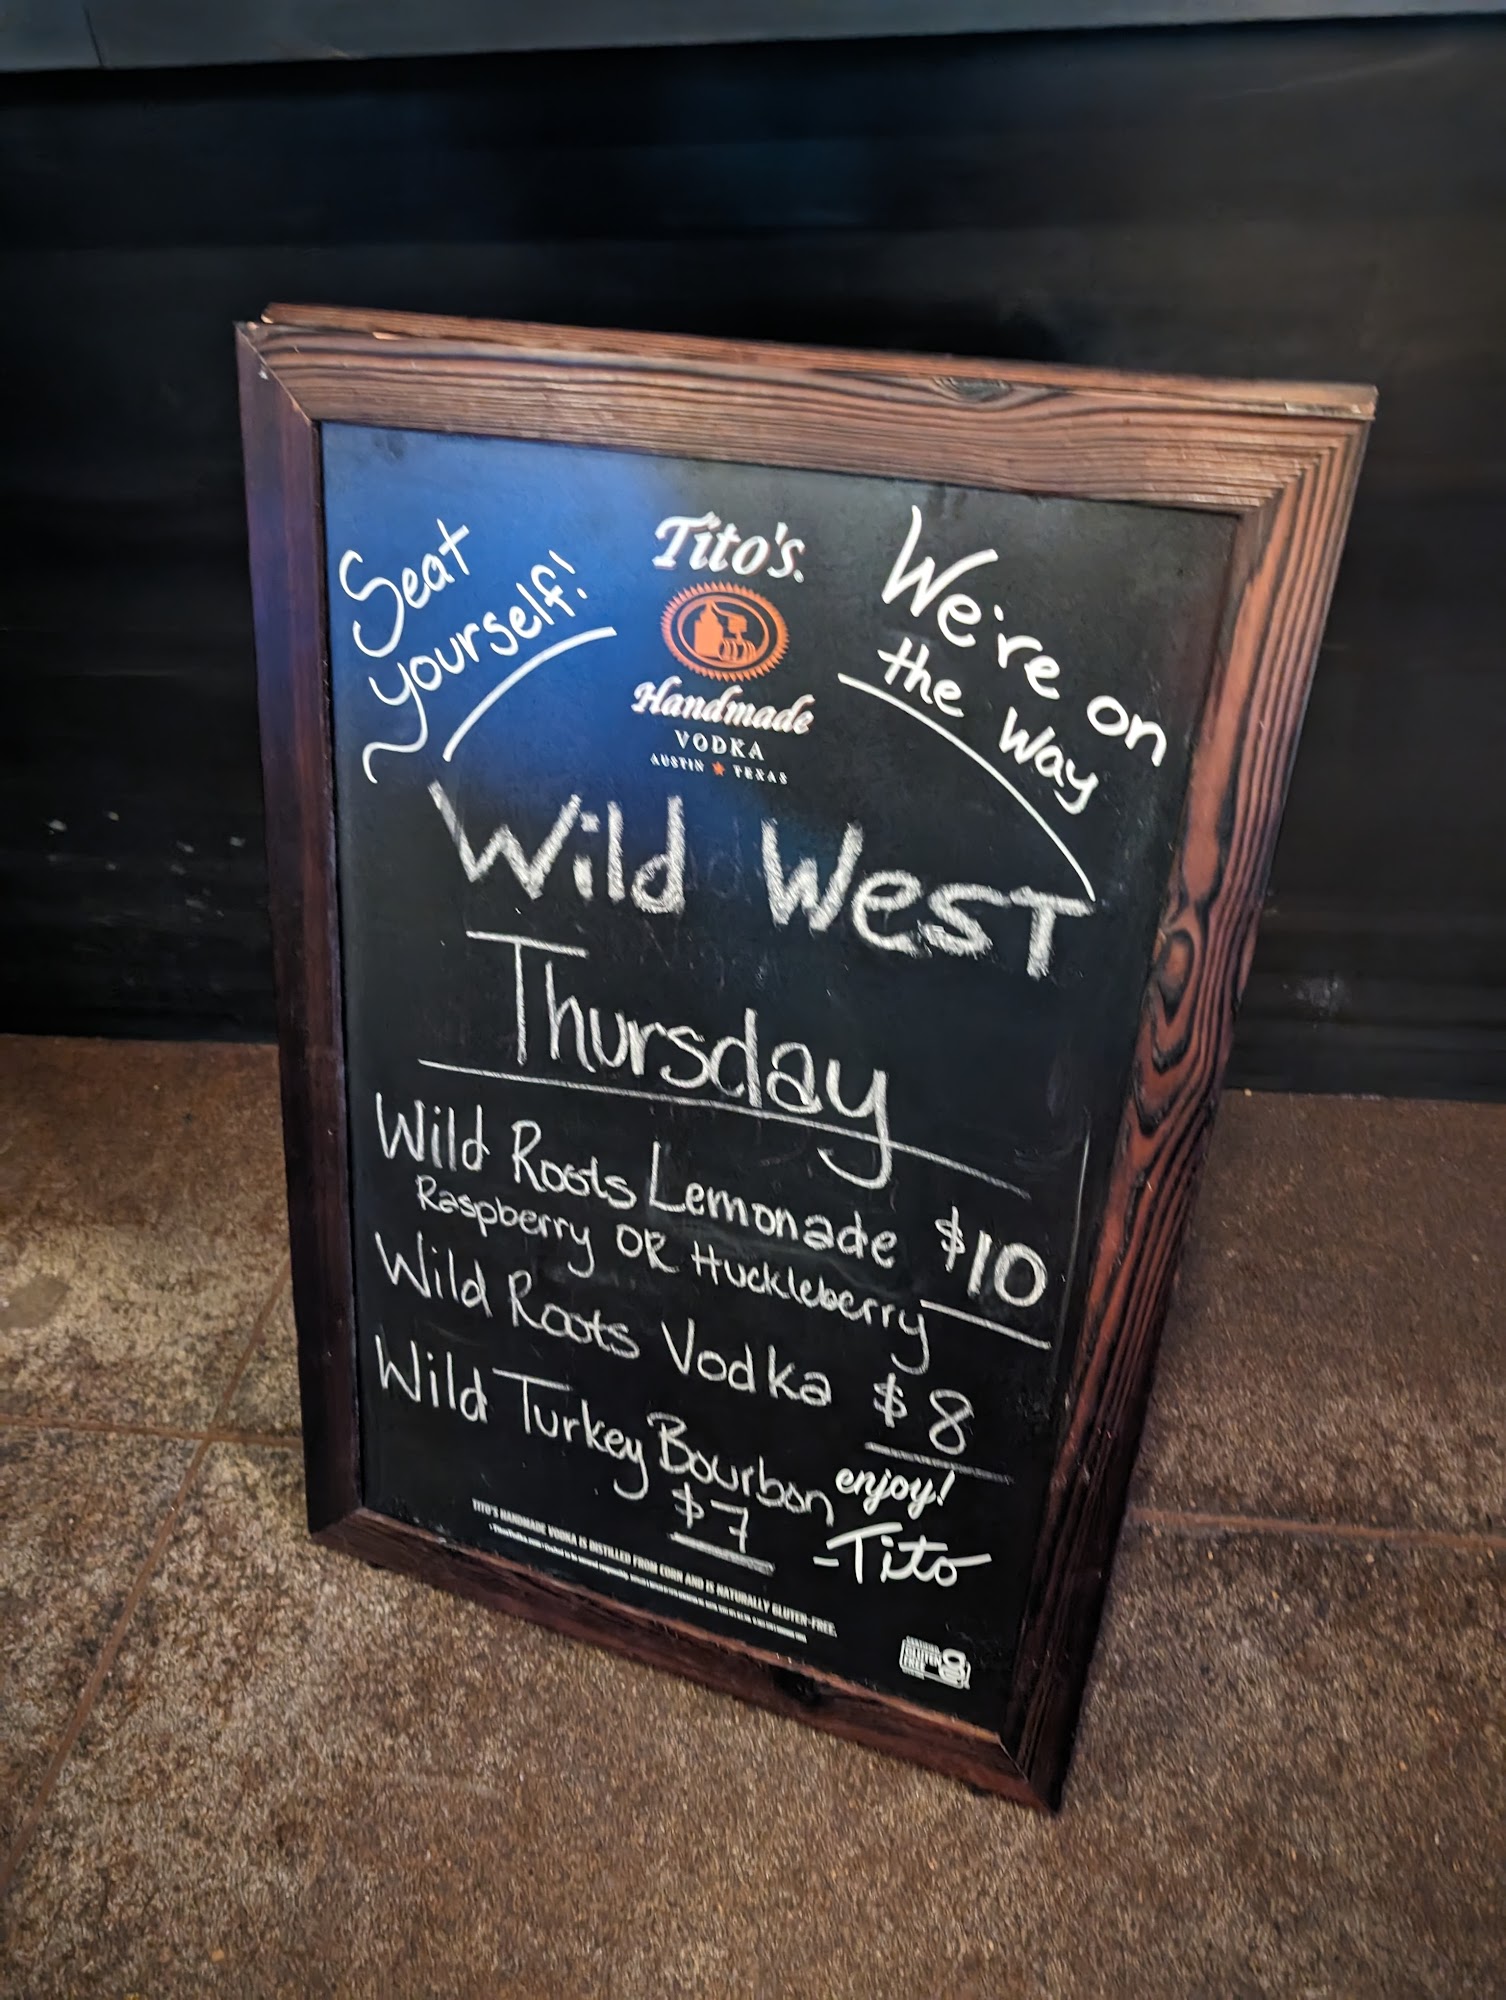 Seat
yourself!
Tito's.
Handmade
VODKA
AUSTIN ★ TEXAS
We're on
the way
Wild West
Thursday
Wild Roots Lemonade $10
Raspberry OR Huckleberry
Wild Roots Vodka $8
Wild Turkey Bourbon
$7
enjoy!
-Tito
TITO'S HANDMADE VODKA IS DISTILLED FROM CORN AND IS NATURALLY GLUTEN-FREE.
GLUTEN
FREE